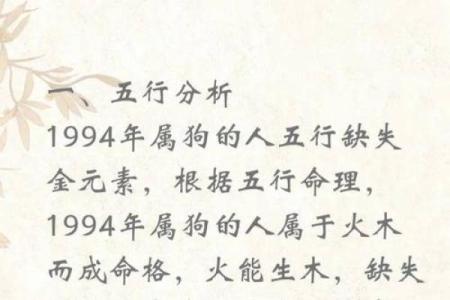 一、五行分析
1994年属狗的人五行缺失
金元素，根据五行命理，
1994年属狗的人属于火木
而成命格，火能生木，缺失